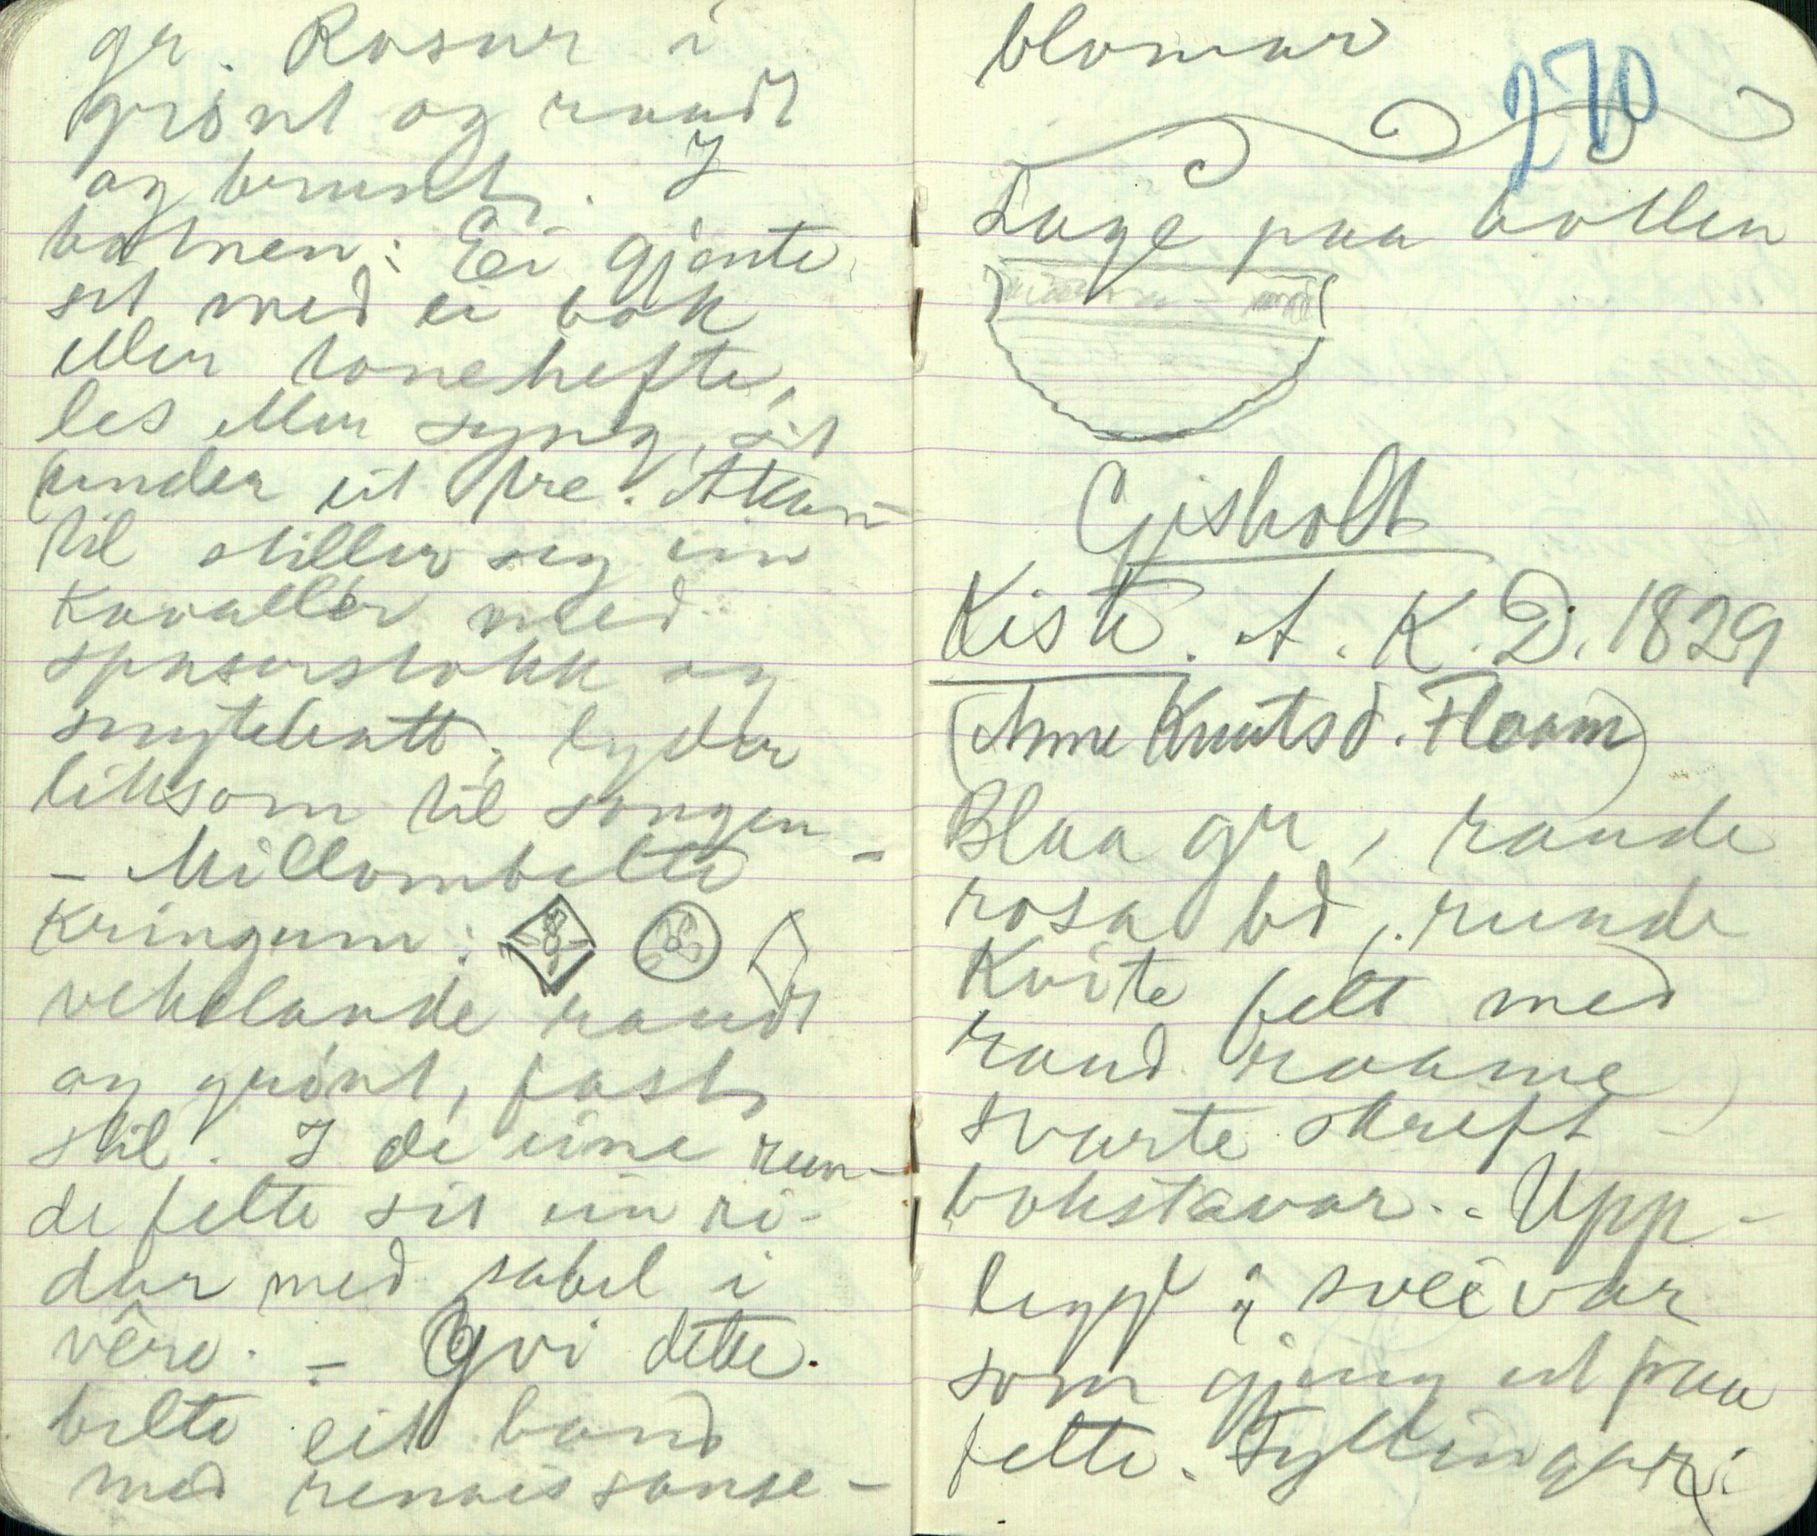 gr. Rosur i
grönt og raudt
og brunt. I
botnen: Ei gjente
sit med ei bok
eller tonehefte,
les eller syng, sit
under eit tre. Attan-
til stiller seg ein
Kavaller med
spaserstokk og
snytehatt, lyder
liksom til songen
- Millombelte -
kringum:
vekslande raudt
og grönt, fast
stil. I de eine run-
de felte sit ein ri-
dar med sabel i
vêre. - Yvi dette
belte eit band
med renaissanse-
blomar
270
Lage paa bollen
Gjisholt
Kiste. A. K. D. 1829
(Anne Knutsd. Flaam)
Blaa gr, raude
rosa bd, runde
Kvite felt med
raud raame
svarte skreft-
bokstavar. - Upp-
legg i sveivar
som gjeng ut paa
felte. Fyllingar i